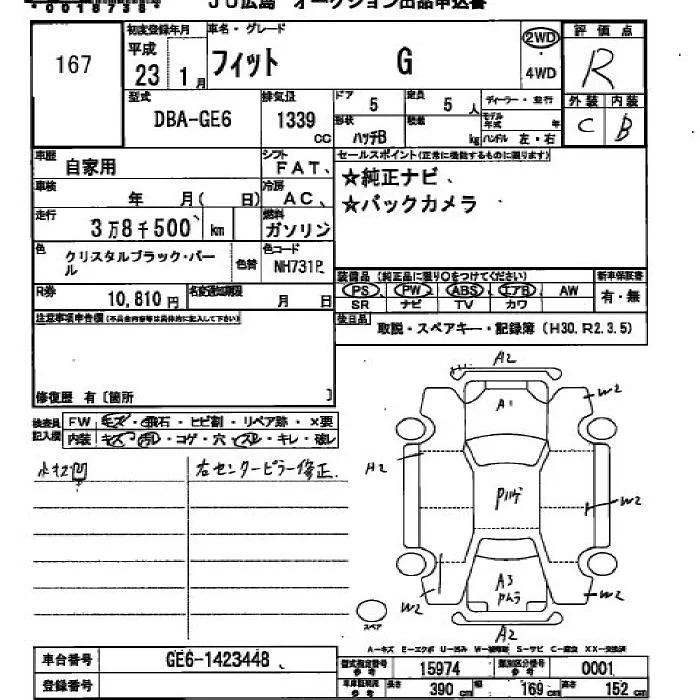 JU広島 オークション出品申込書
167
初度登録年月 車名・グレード
平成 23 1月
フィット G
2WD
・
4WD
評価点
R
型式 排気量
DBA-GE6 1339 cc
ドア 5 定員 5人
形状 ハッチB 積載 kg
ディーラー・並行
モデル年式 年
ハンドル 左・右
外装 内装
C B
車歴 自家用
シフト FAT、
セールスポイント(正常に機能するものに限ります)
☆純正ナビ、
☆バックカメラ
車検 年 月( 日)
冷房 AC、
走行 3万8千500 km
燃料 ガソリン
色 クリスタルブラック・パール 色替
色コード NH731P
R券 10,810円
名変通知期限 月 日
装備品 (純正品に限り○をつけてください) 新車保証書
PS・PW・ABS・エアB・AW 有・無
SR ナビ TV カワ
後日品 取説・スペアキー・記録簿(H30.R2.3.5)
注意事項申告欄(不具合内容等は具体的に記入して下さい)
修復歴 有〔箇所 〕
検査員記入欄
FW キズ・飛石・ヒビ割・リペア跡・×要
内装 キズ・汚レ・コゲ・穴・スレ・キレ・破レ
右センターピラー修正.
A2
A1
W2
A2
W2
W2
W2
A3
A2
スペア
A-キズ E-エクボ U-凹み W-補修跡 S-サビ C-腐食 XX-交換済
車台番号 GE6-1423448、
登録番号
型式指定番号 参考 15974 類別区分番号 参考 0001
車体寸法 参考 長さ 390cm 幅 169cm 高さ 152cm